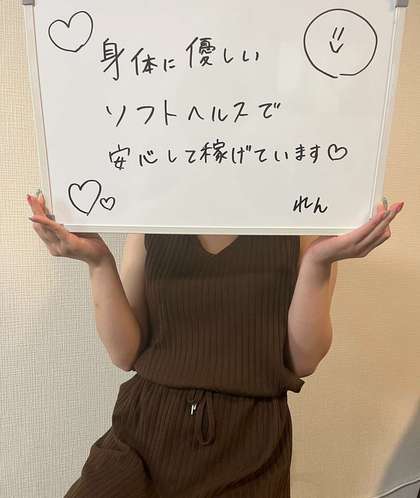 身体に優しい
ソフトヘルスで
安心して稼げています♡
れん